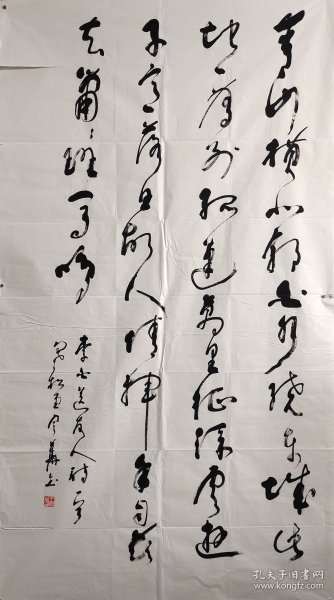 青山橫北郭白水繞东城此
地一为別孤蓬萬里征浮雲遊
子意落日故人情揮手自茲
去萧〻班马鸣
李白送友人诗一首
孔夫子旧书网
www.kongfz.com